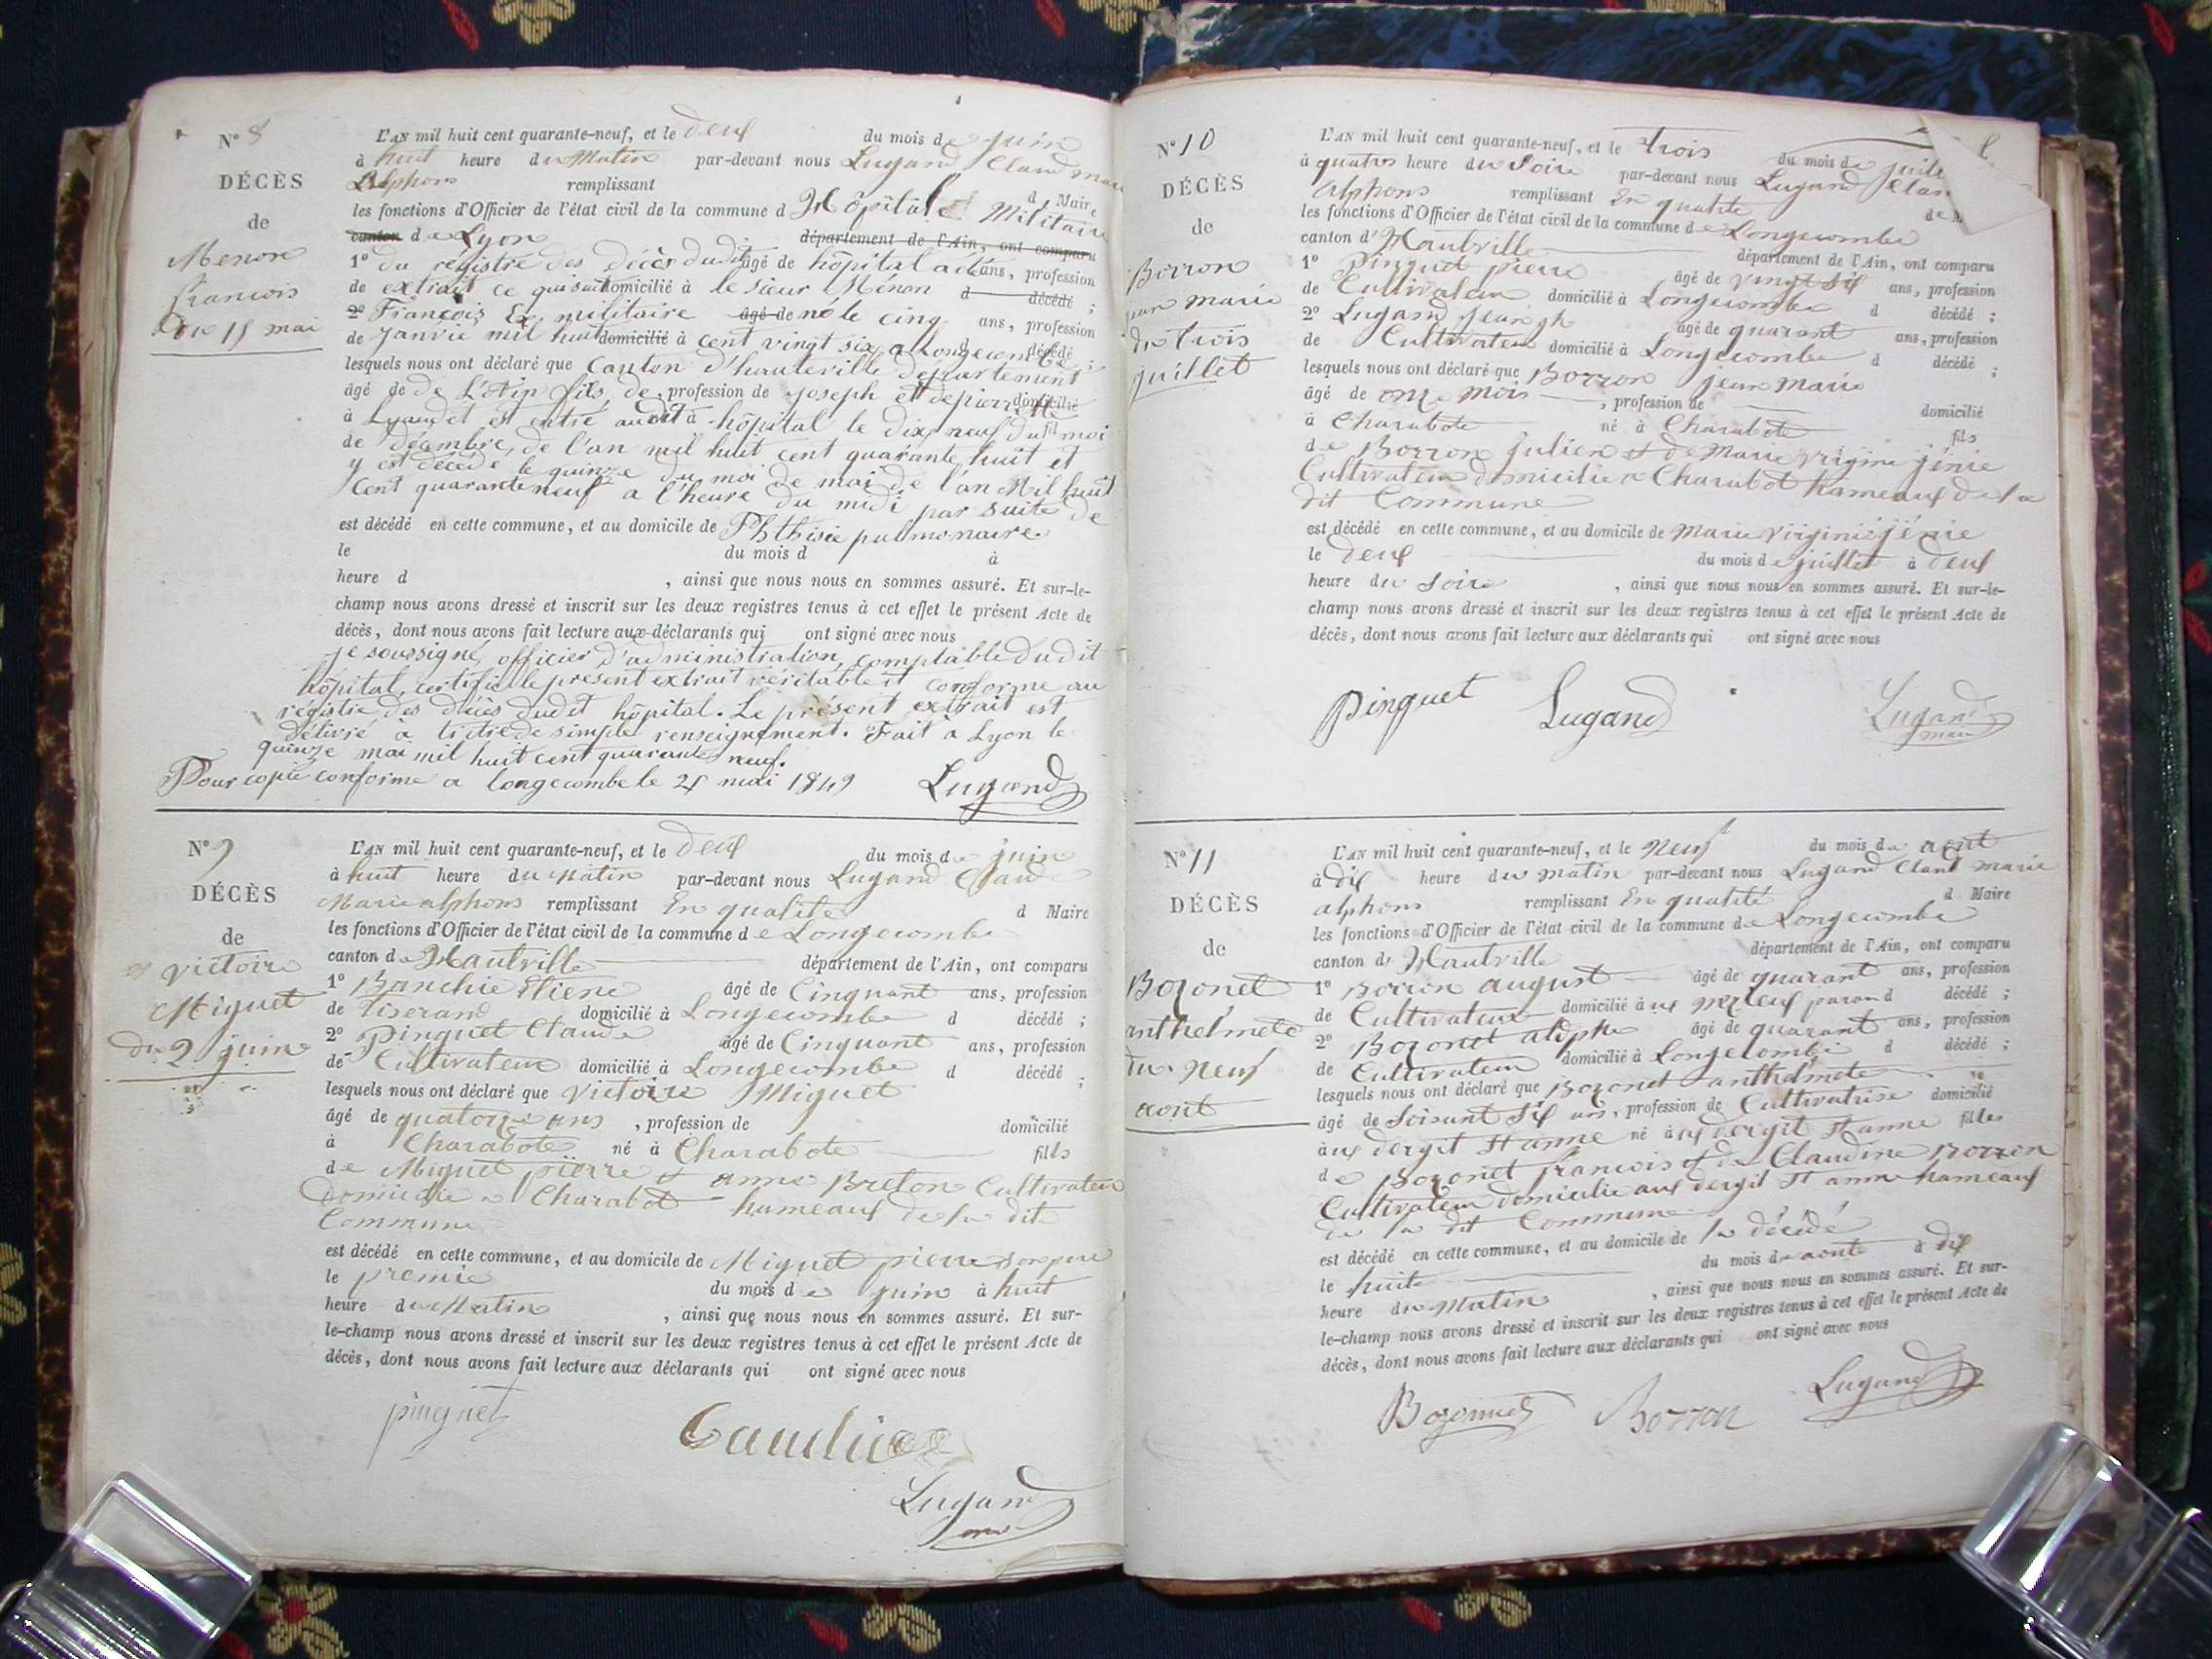 N° 8
DÉCÈS
de
Menon
francois
du 15 mai
L'AN mil huit cent quarante-neuf, et le deux du mois de juin
à huit heure du Matin par-devant nous Lugand Claud marie
Alphons remplissant d Maire
les fonctions d'Officier de l'état civil de la commune d Hôpital Militaire
canton de Lyon département de l'Ain, ont comparu
1° du registre des décès dudit âgé de hôpital a été ans, profession
de extrait ce qui suit domicilié à le sieur Menon d décédé ;
2° François Ex militaire âgé de né le cinq ans, profession
de janvie mil huit domicilié à cent vingt six a Longecombe d décédé ;
lesquels nous ont déclaré que Canton d'hauteville département
âgé de de L'Ain fils de, profession de joseph et de pierrette domicilié
à Lyaudet est entré audit à hôpital le dix neuf du fil moi
de décembre de l'an mil huit cent quarante huit et
y est décédé le quinze du moi de mai de l'an Mil huit
Cent quarante neuf a l'heure du midi par suite de
est décédé en cette commune, et au domicile de Phthisie pulmonaire
le du mois d à
heure d , ainsi que nous nous en sommes assuré. Et sur-le-
champ nous avons dressé et inscrit sur les deux registres tenus à cet effet le présent Acte de
décès, dont nous avons fait lecture aux déclarants qui ont signé avec nous
je soussigné, officier d'administration, comptable dudit
hôpital, certifie le présent extrait véritable et conforme au
régistre des décès dudet hôpital. Le présent extrait est
délivré à titre de simple renseignement. Fait à Lyon le
quinze mai mil huit cent quarante neuf.
Pour copie conforme a longecombe le 25 mai 1849 Lugand
N° 9
DÉCÈS
de
victoire
Miguet
du 2 juin
L'AN mil huit cent quarante-neuf, et le deux du mois de juin
à huit heure du Matin par-devant nous Lugand Claude
Marie alphons remplissant En qualité d Maire
les fonctions d'Officier de l'état civil de la commune de Longecombe
canton de Hautville département de l'Ain, ont comparu
1° Banchie Etiene âgé de Cinquant ans, profession
de tiserand domicilié à Longecombe d décédé ;
2° Pinguet Claude âgé de Cinquant ans, profession
de Cultivateur domicilié à Longecombe d décédé ;
lesquels nous ont déclaré que victoire Miguet
âgé de quatorze ans , profession de domicilié
à Charabote né à Charabote fills
de Miguet pierre et anne Breton Cultivateur
domicilie a Charabot hameaux de la dit
Commune
est décédé en cette commune, et au domicile de Miguet pierre son pere
le premie du mois de juin à huit
heure du Matin , ainsi que nous nous en sommes assuré. Et sur-
le-champ nous avons dressé et inscrit sur les deux registres tenus à cet effet le présent Acte de
décès, dont nous avons fait lecture aux déclarants qui ont signé avec nous
pinguet
Lugand
N° 10
DÉCÈS
de
Borron
jean marie
du trois
juillet
L'AN mil huit cent quarante-neuf, et le trois du mois de juile
à quatre heure du Soire par-devant nous Lugand Clau
alphons remplissant En qualite de M
les fonctions d'Officier de l'état civil de la commune de Longecombe
canton d' Hautville département de l'Ain, ont comparu
1° Pinguet pierre âgé de vingt six ans, profession
de Cultivateur domicilié à Longecombe d décédé ;
2° Lugand jean jh âgé de quarant ans, profession
de Cultivateur domicilié à Longecombe d décédé ;
lesquels nous ont déclaré que Borron jean Marie
âgé de onze mois , profession de domicilié
à Charabote né à Charabote fils
de Borron julien et de Marie virgine jénie
Cultivateur domicilie a Charabot hameaux de la
dit Commune
est décédé en cette commune, et au domicile de Marie virginie jénie
le deux du mois de juillet à deux
heure du Soire , ainsi que nous nous en sommes assuré. Et sur-le-
champ nous avons dressé et inscrit sur les deux registres tenus à cet effet le présent Acte de
décès, dont nous avons fait lecture aux déclarants qui ont signé avec nous
Pinguet Lugand Lugand
maire
N° 11
DÉCÈS
de
Bozonet
anthelmete
du neuf
aout
L'AN mil huit cent quarante-neuf, et le Neuf du mois de aout
à dix heure du matin par-devant nous Lugand Claud marie
alphons remplissant En qualité d Maire
les fonctions d'Officier de l'état civil de la commune de Longecombe
canton de Hautville département de l'Ain, ont comparu
1° Borron august âgé de quarant ans, profession
de Cultivateur domicilié à d décédé ;
2° Bozonet âgé de quarant ans, profession
de Cultivateur domicilié à Longecombe d décédé ;
lesquels nous ont déclaré que Bozonet anthelmete
âgé de Soisant Six ans, profession de Cultivatrise domicilié
à aux dergit St anne né à aux dergit St anne filles
de Bozonet francois et de Claudine Borron
Cultivateur domicilie aux dergit St anne hameaux
de la dit Commune
est décédé en cette commune, et au domicile de la décédé
le huite du mois de aoute à dix
heure du matin , ainsi que nous nous en sommes assuré. Et sur-
le-champ nous avons dressé et inscrit sur les deux registres tenus à cet effet le présent Acte de
décès, dont nous avons fait lecture aux déclarants qui ont signé avec nous
Bozonnet Borron Lugand